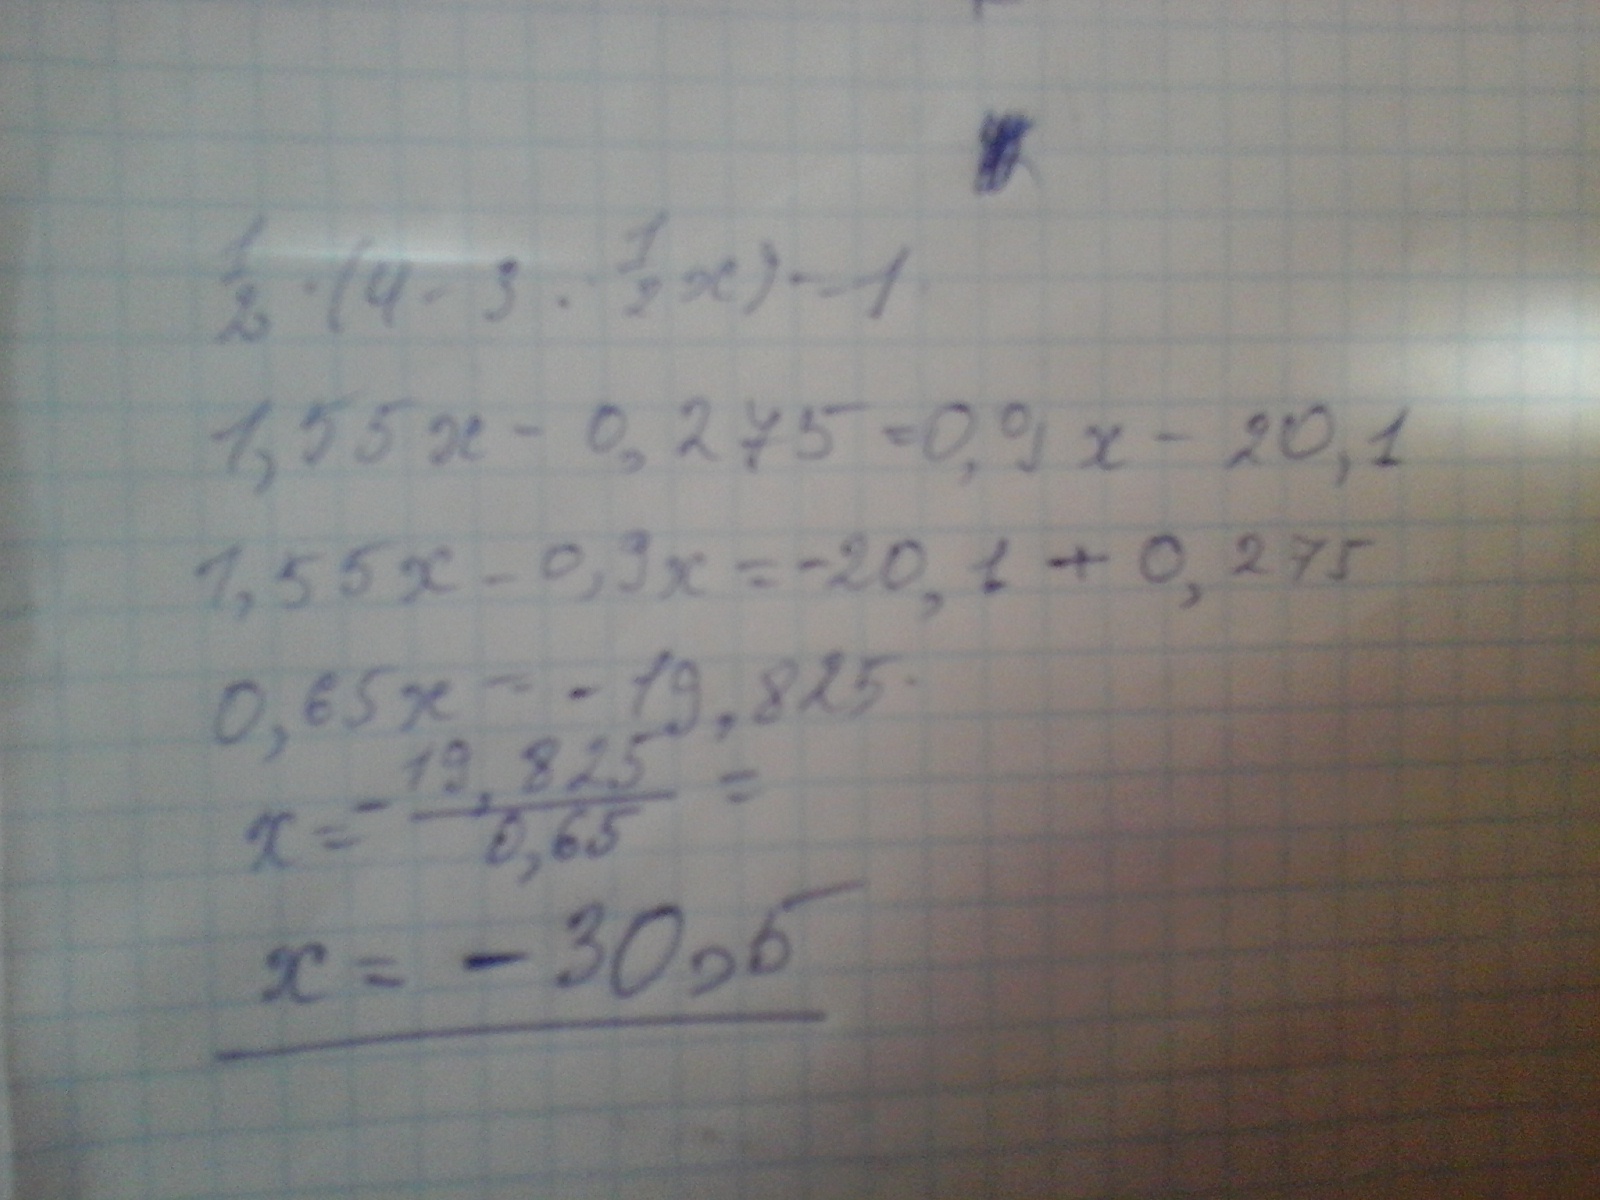 1/2 · (4 - 3 · 1/2 x) - 1
1,55x - 0,275 = 0,9x - 20,1
1,55x - 0,9x = -20,1 + 0,275
0,65x = -19,825
x = - 19,825/0,65 =
x = - 30,5